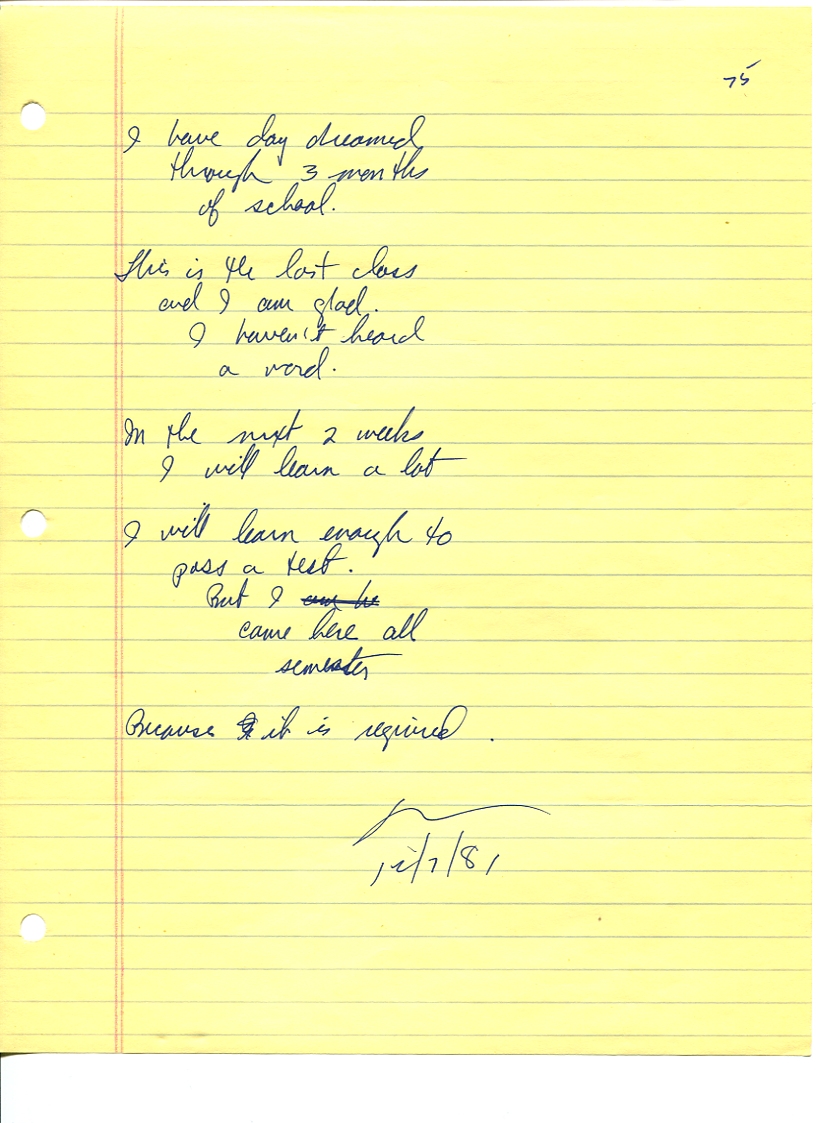 75
I have day dreamed
through 3 months
of school.
This is the last class
and I am glad.
I haven't heard
a word.
In the next 2 weeks
I will learn a lot
I will learn enough to
pass a test.
But I am he
came here all
semester
Because it is required.
12/7/81